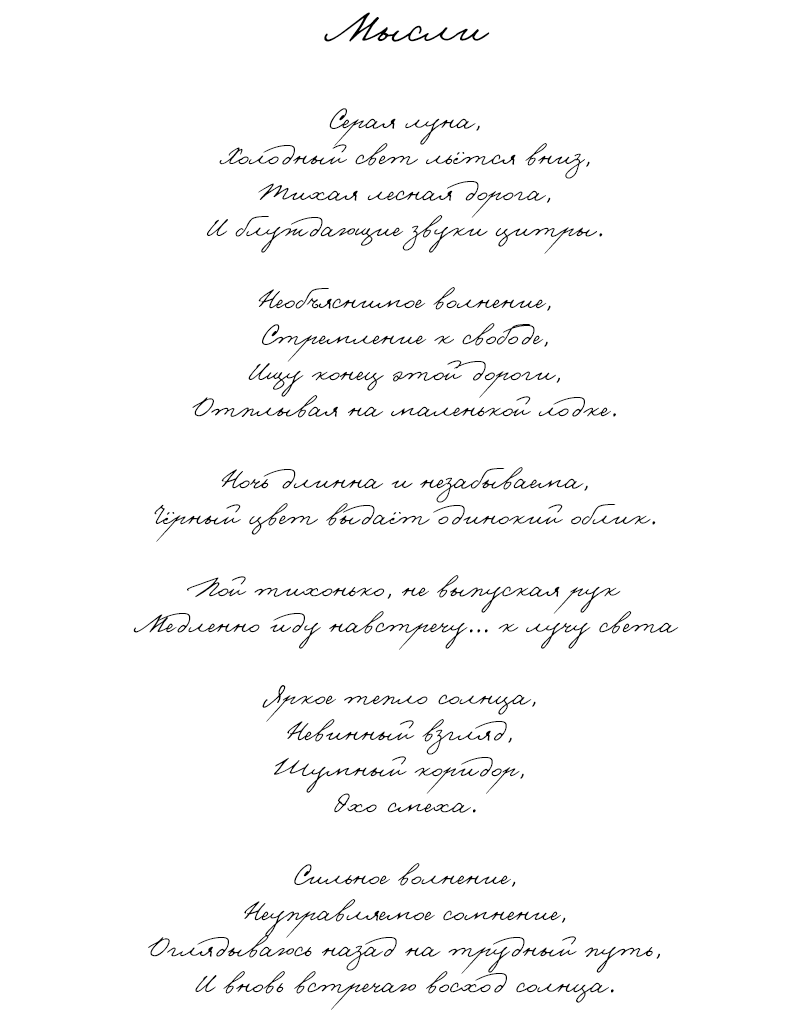 Мысли
Серая луна,
Холодный свет льётся вниз,
Тихая лесная дорога,
И блуждающие звуки цитры.
Необъяснимое волнение,
Стремление к свободе,
Ищу конец этой дороги,
Отплывая на маленькой лодке.
Ночь длинна и незабываема,
Чёрный цвет выдаёт одинокий облик.
Пой тихонько, не выпуская рук
Медленно иду навстречу... к лучу света
Яркое тепло солнца,
Невинный взгляд,
Шумный коридор,
Эхо смеха.
Сильное волнение,
Неуправляемое сомнение,
Оглядываюсь назад на трудный путь,
И вновь встречаю восход солнца.